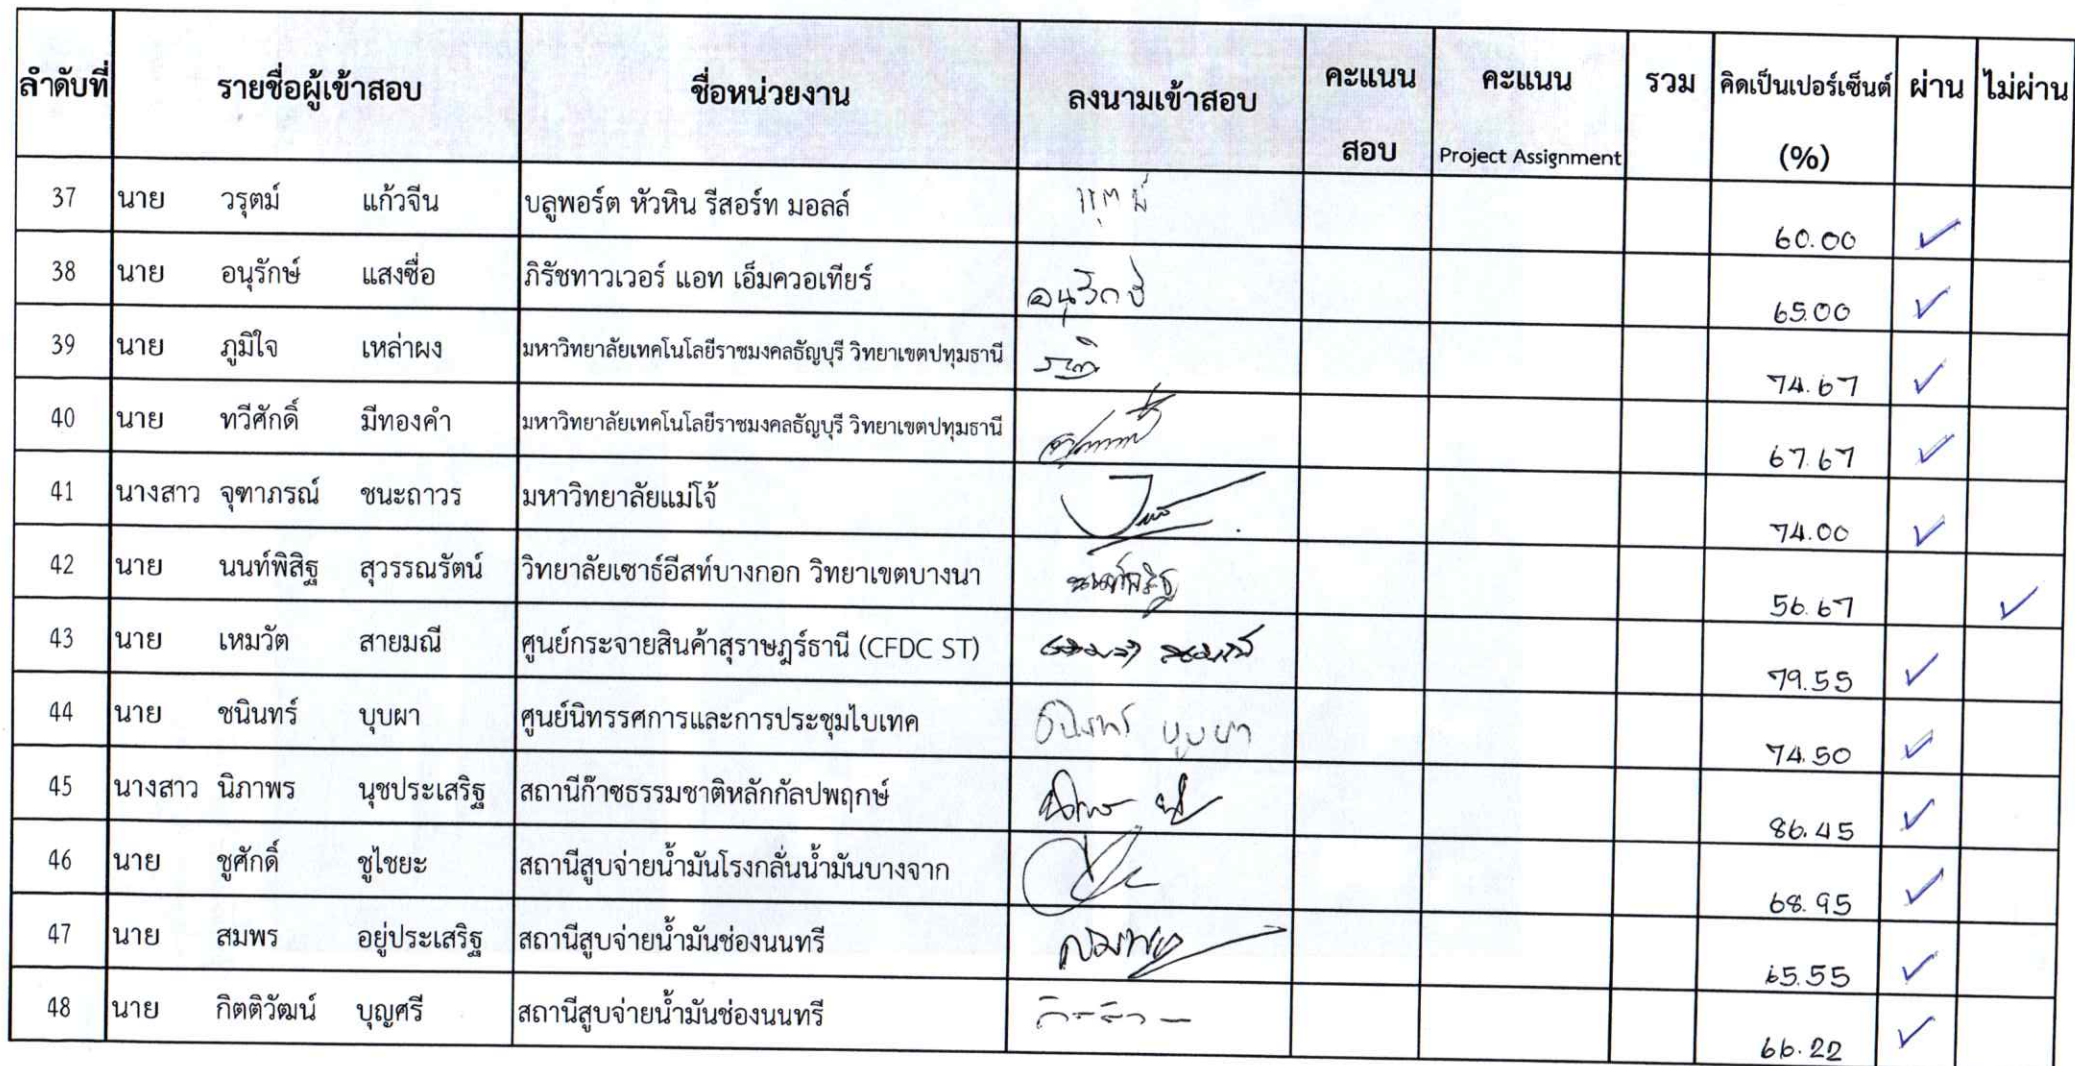 ลำดับที่ รายชื่อผู้เข้าสอบ ชื่อหน่วยงาน ลงนามเข้าสอบ คะแนน คะแนน รวม คิดเป็นเปอร์เซ็นต์ ผ่าน ไม่ผ่าน
สอบ Project Assignment (%)
37 นาย วรุตม์ แก้วจีน บลูพอร์ต หัวหิน รีสอร์ท มอลล์ วรุตม์ 60.00 ✓
38 นาย อนุรักษ์ แสงซื่อ ภิรัชทาวเวอร์ แอท เอ็มควอเทียร์ อนุรักษ์ 65.00 ✓
39 นาย ภูมิใจ เหล่าผง มหาวิทยาลัยเทคโนโลยีราชมงคลธัญบุรี วิทยาเขตปทุมธานี 74.67 ✓
40 นาย ทวีศักดิ์ มีทองคำ มหาวิทยาลัยเทคโนโลยีราชมงคลธัญบุรี วิทยาเขตปทุมธานี 67.67 ✓
41 นางสาว จุฑาภรณ์ ชนะถาวร มหาวิทยาลัยแม่โจ้ 74.00 ✓
42 นาย นนท์พิสิฐ สุวรรณรัตน์ วิทยาลัยเซาธ์อีสท์บางกอก วิทยาเขตบางนา นนท์พิสิฐ 56.67 ✓
43 นาย เหมวัต สายมณี ศูนย์กระจายสินค้าสุราษฎร์ธานี (CFDC ST) 79.55 ✓
44 นาย ชนินทร์ บุบผา ศูนย์นิทรรศการและการประชุมไบเทค ชนินทร์ บุบผา 74.50 ✓
45 นางสาว นิภาพร นุชประเสริฐ สถานีก๊าซธรรมชาติหลักกัลปพฤกษ์ 86.45 ✓
46 นาย ชูศักดิ์ ชูไชยะ สถานีสูบจ่ายน้ำมันโรงกลั่นน้ำมันบางจาก 68.95 ✓
47 นาย สมพร อยู่ประเสริฐ สถานีสูบจ่ายน้ำมันช่องนนทรี 65.55 ✓
48 นาย กิตติวัฒน์ บุญศรี สถานีสูบจ่ายน้ำมันช่องนนทรี 66.22 ✓